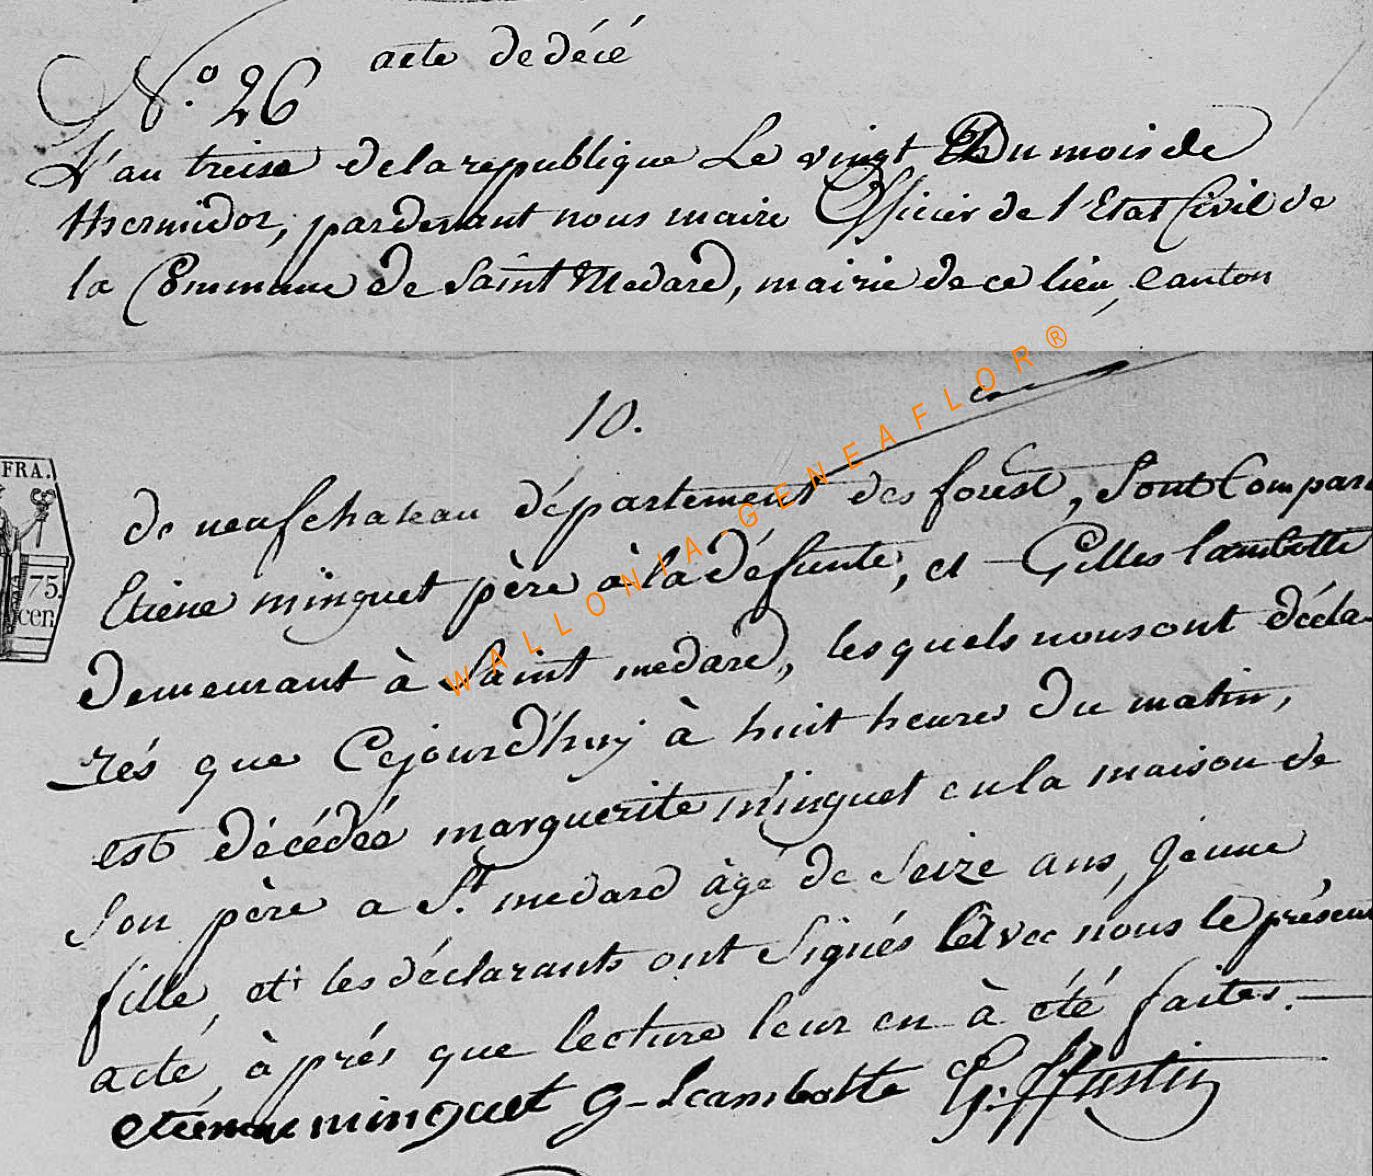 acte de décé
N.o 26
L'an treise de la republique Le vingt Du mois de
thermidor, pardevant nous maire Officier de l'Etat Civil de
la Commune de Saint Medard, mairie de ce lieu, Canton
10.
de neufchateau département des forêst, Sont Compar
FRA.
75.
cen
Etiene minguet père à la défunte, et Gilles lambotte
demeurant à Saint medard, lesquels nous ont décla-
rés que Cejourd'huj à huit heures du matin,
est décédée marguerite minguet en la maison de
Son père a St. medard âgé de Seize ans, jeune
fille, et les déclarants ont Signés avec nous le présent
acte, à prés que lecture leur en à été faites.
etienne minguet G-Lambotte
WALLONIA-GENEAFLOR®